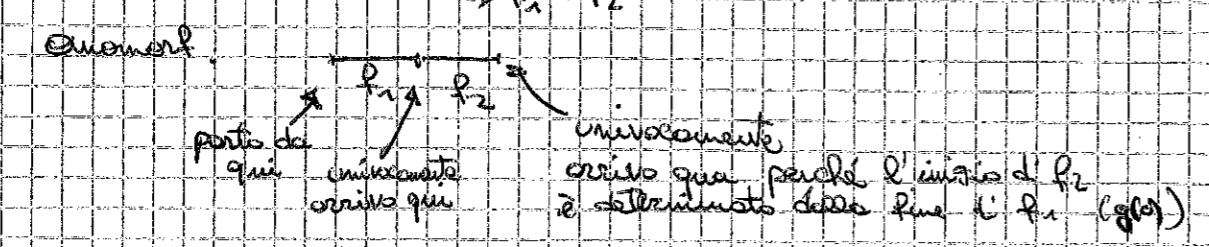 Omomorf.
f1 f2
parto da
qui
univocamente
arrivo qui
univocamente
arrivo qua perché l'inizio di f2
è determinato dalla fine di f1 (g(0))